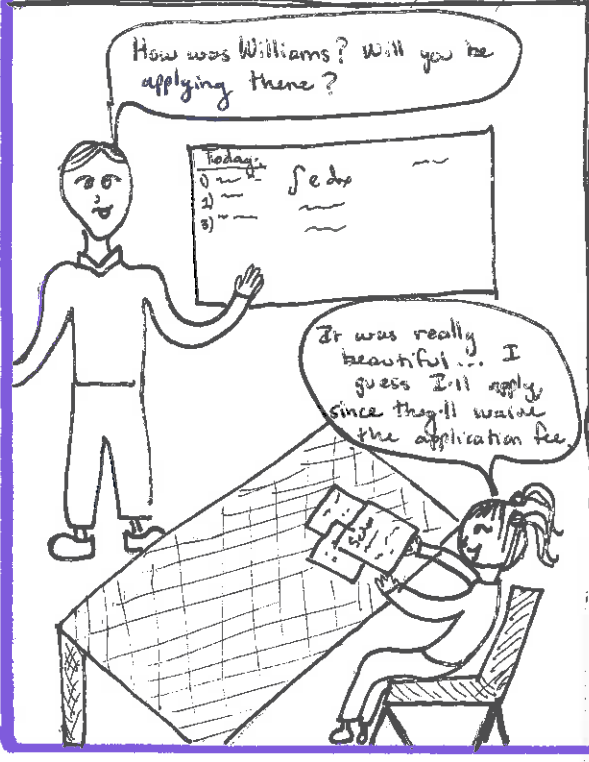 How was Williams? Will you be
applying there?
Today:
1)
2)
3)
∫ e dx
It was really
beautiful... I
guess I'll apply,
since they'll waive
the application fee.